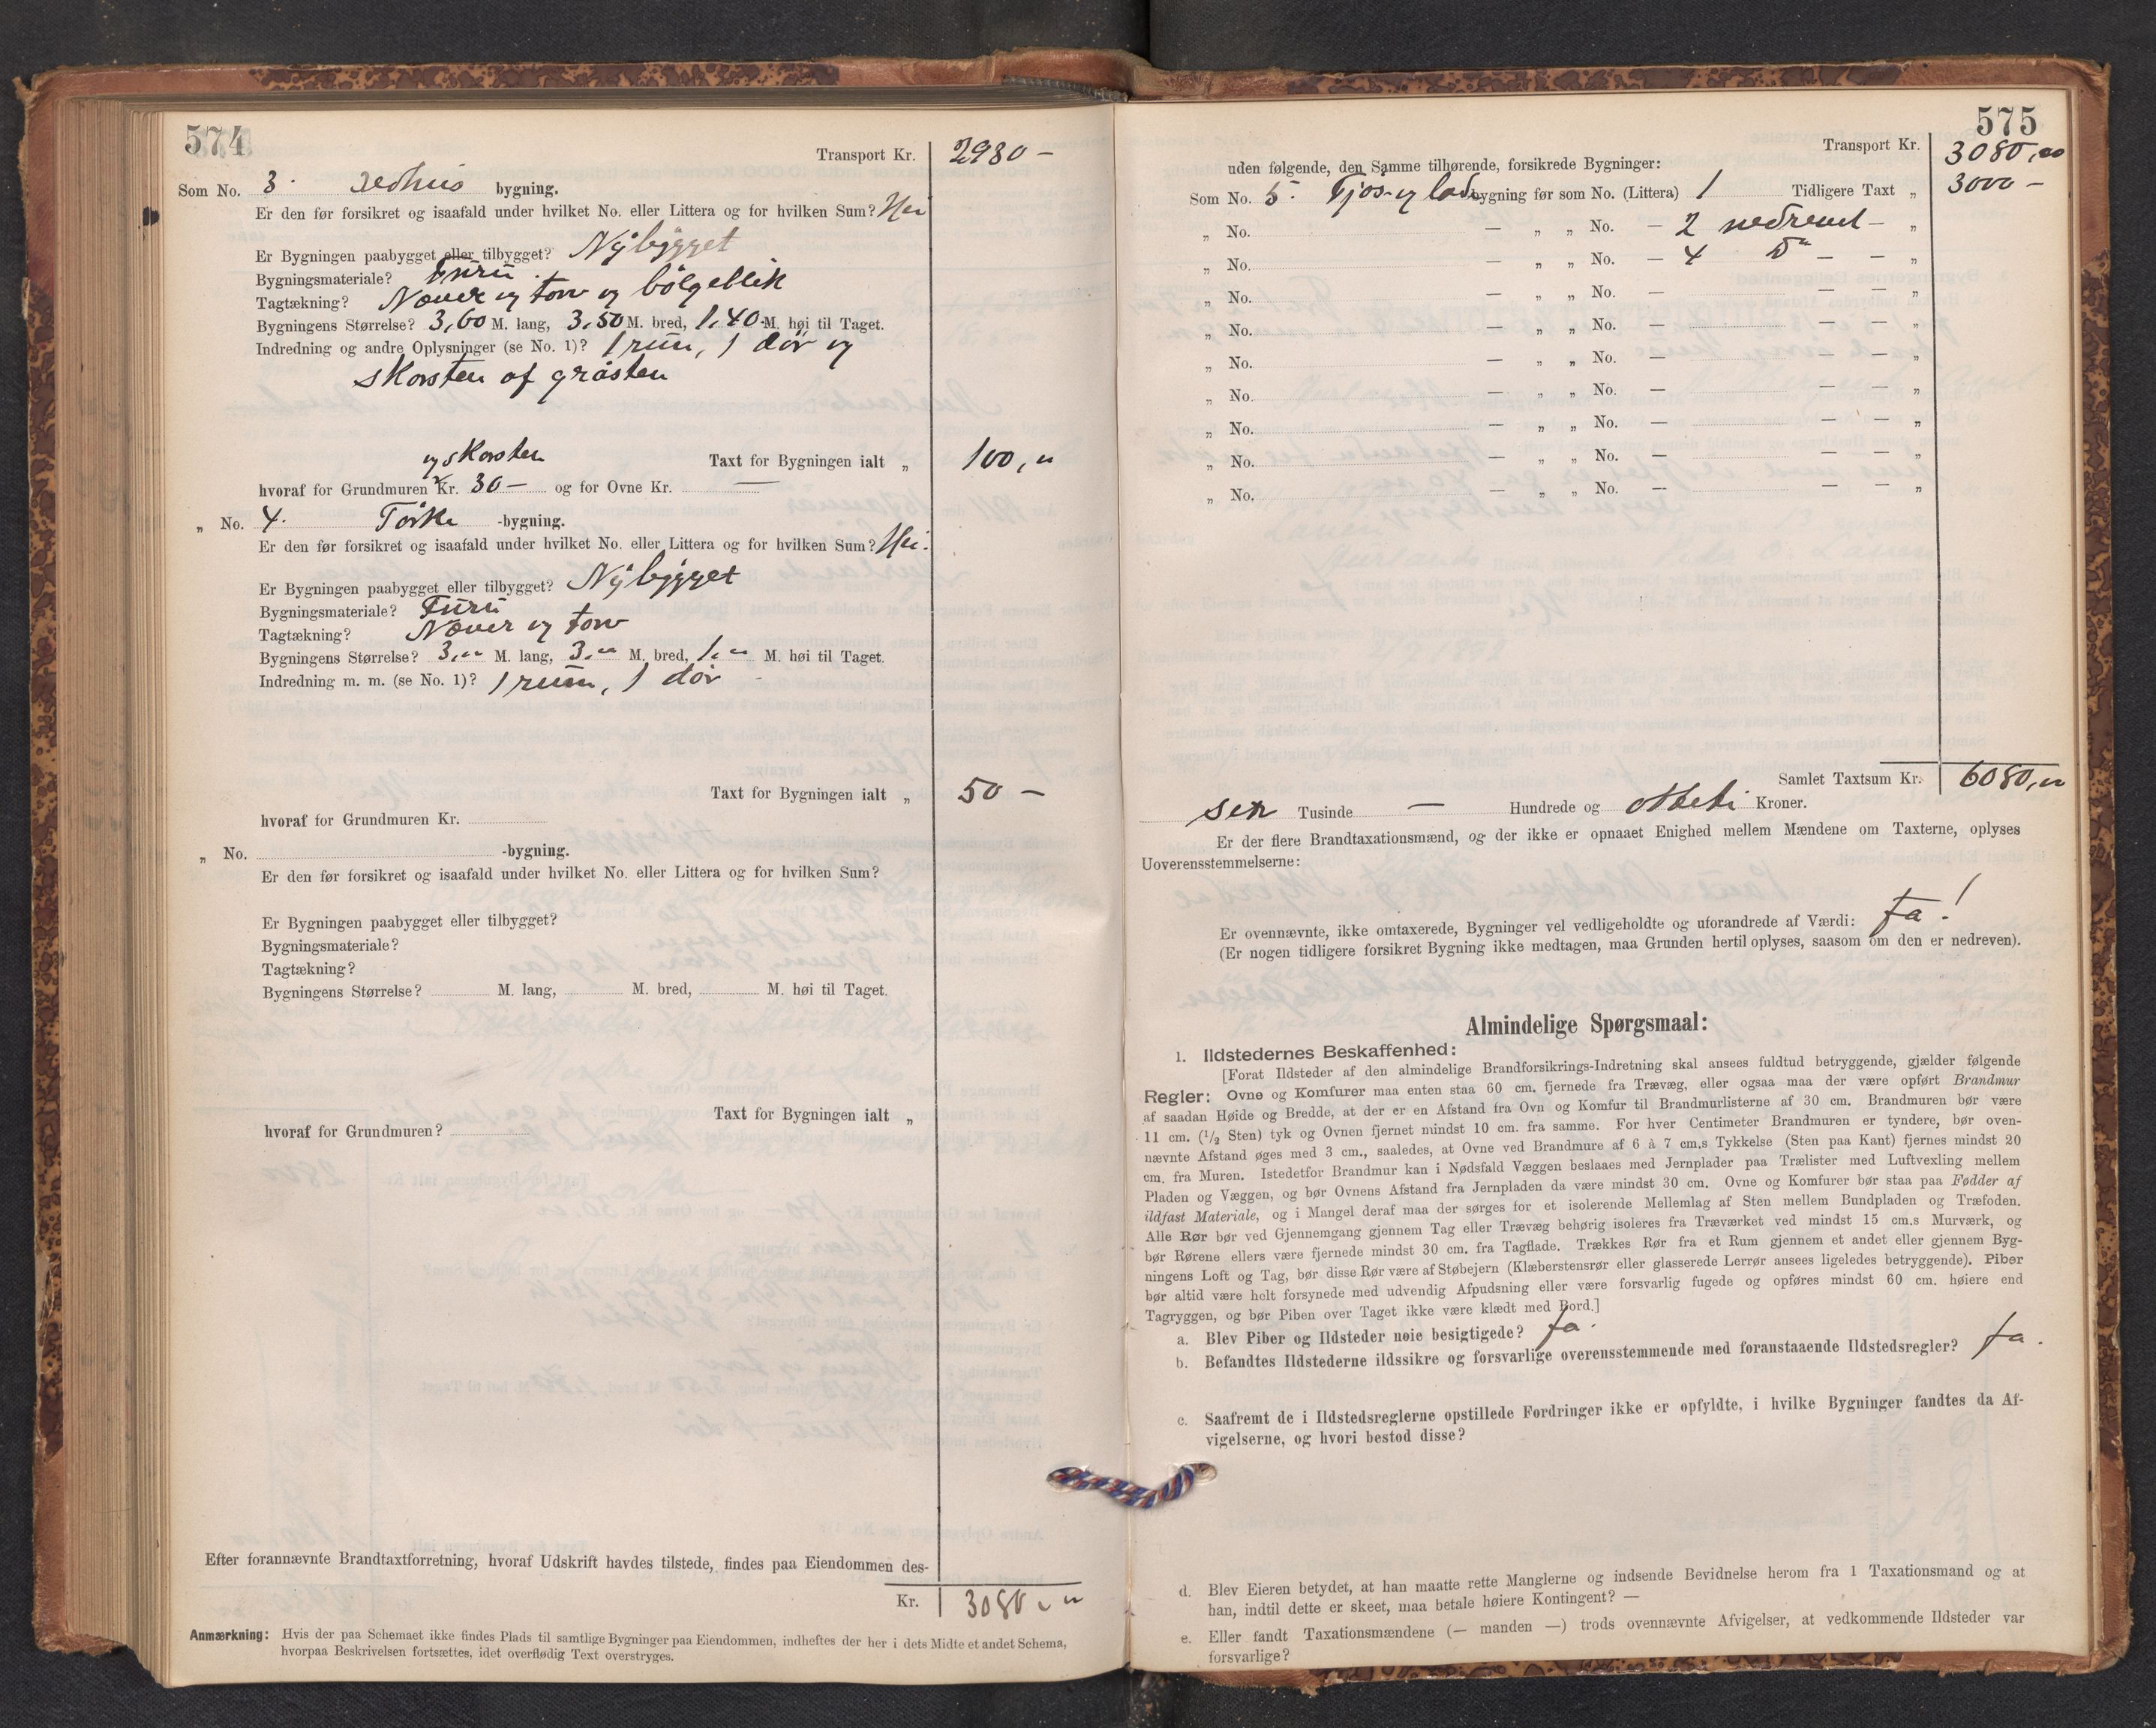 574
Transport Kr. 2930 —
Som No. 3. Ildhus bygning.
Er den før forsikret og isaafald under hvilket No. eller Littera og for hvilken Sum? Nei
Er Bygningen paabygget eller tilbygget? Nybygget
Bygningsmateriale? Furu.
Tagtækning? Næver og torv og bølgeblik
Bygningens Størrelse? 3,60 M. lang, 3,50 M. bred, 1.40 M. høi til Taget.
Indredning og andre Oplysninger (se No. 1)? 1 rum, 1 dør og
skorsten af gråsten
og skorsten
Taxt for Bygningen ialt „ 100, "
hvoraf for Grundmuren Kr. 30 — og for Ovne Kr. —
„ No. 4. Törke -bygning.
Er den før forsikret og isaafald under hvilket No. eller Littera og for hvilken Sum? Nei.
Er Bygningen paabygget eller tilbygget? Nybygget
Bygningsmateriale? Furu
Tagtækning? Næver og torv
Bygningens Størrelse? 3," M. lang, 3," M. bred, 1." M. høi til Taget.
Indredning m. m. (se No. 1)? 1 rum, 1 dør
Taxt for Bygningen ialt „ 50 —
hvoraf for Grundmuren Kr.
„ No. -bygning.
Er den før forsikret og isaafald under hvilket No. eller Littera og for hvilken Sum?
Er Bygningen paabygget eller tilbygget?
Bygningsmateriale?
Tagtækning?
Bygningens Størrelse? M. lang, M. bred, M. høi til Taget.
Taxt for Bygningen ialt „
hvoraf for Grundmuren?
Efter forannævnte Brandtaxtforretning, hvoraf Udskrift havdes tilstede, findes paa Eiendommen des-
Kr. 3080, "
Anmærkning: Hvis der paa Schemaet ikke findes Plads til samtlige Bygninger paa Eiendommen, indheftes der her i dets Midte et andet Schema,
hvorpaa Beskrivelsen fortsættes, idet overflødig Text overstryges.
575
Transport Kr. 3080,00
uden følgende, den Samme tilhørende, forsikrede Bygninger:
Som No. 5. Fjös og lade bygning før som No. (Littera) 1 Tidligere Taxt „ 3000 —
„ No. — „ „ No. — 2 nedrevet — „
„ No. — „ „ No. — 4 Do — — „
„ No. — „ „ No. — — — „
„ No. — „ „ No. — — — „
„ No. — „ „ No. — — — „
„ No. — „ „ No. — — — „
„ No. — „ „ No. — — — „
„ No. — „ „ No. — — — „
„ No. — „ „ No. — — — „
Samlet Taxtsum Kr. 6080, "
sex Tusinde — Hundrede og otteti Kroner.
Er der flere Brandtaxationsmænd, og der ikke er opnaaet Enighed mellem Mændene om Taxterne, oplyses
Uoverensstemmelserne:
Er ovennævnte, ikke omtaxerede, Bygninger vel vedligeholdte og uforandrede af Værdi: Ja!
(Er nogen tidligere forsikret Bygning ikke medtagen, maa Grunden hertil oplyses, saasom om den er nedreven).
Almindelige Spørgsmaal:
1. Ildstedernes Beskaffenhed:
[Forat Ildsteder af den almindelige Brandforsikrings-Indretning skal ansees fuldtud betryggende, gjælder følgende
Regler: Ovne og Komfurer maa enten staa 60 cm. fjernede fra Trævæg, eller ogsaa maa der være opført Brandmur
af saadan Høide og Bredde, at der er en Afstand fra Ovn og Komfur til Brandmurlisterne af 30 cm. Brandmuren bør være
11 cm. (1/2 Sten) tyk og Ovnen fjernet mindst 10 cm. fra samme. For hver Centimeter Brandmuren er tyndere, bør oven-
nævnte Afstand øges med 3 cm., saaledes, at Ovne ved Brandmure af 6 à 7 cm.s Tykkelse (Sten paa Kant) fjernes mindst 20
cm. fra Muren. Istedetfor Brandmur kan i Nødsfald Væggen beslaaes med Jernplader paa Trælister med Luftvexling mellem
Pladen og Væggen, og bør Ovnens Afstand fra Jernpladen da være mindst 30 cm. Ovne og Komfurer bør staa paa Fødder af
ildfast Materiale, og i Mangel deraf maa der sørges for et isolerende Mellemlag af Sten mellem Bundpladen og Træfoden.
Alle Rør bør ved Gjennemgang gjennem Tag eller Trævæg behørig isoleres fra Træværket ved mindst 15 cm.s Murværk, og
bør Rørene ellers være fjernede mindst 30 cm. fra Tagflade. Trækkes Rør fra et Rum gjennem et andet eller gjennem Byg-
ningens Loft og Tag, bør disse Rør være af Støbejern (Klæberstensrør eller glasserede Lerrør ansees ligeledes betryggende). Piber
bør altid være helt forsynede med udvendig Afpudsning eller være forsvarlig fugede og opføres mindst 60 cm. høiere end
Tagryggen, og bør Piben over Taget ikke være klædt med Bord.]
a. Blev Piber og Ildsteder nøie besigtigede? Ja.
b. Befandtes Ildstederne ildssikre og forsvarlige overensstemmende med foranstaaende Ildstedsregler? Ja.
c. Saafremt de i Ildstedsreglerne opstillede Fordringer ikke er opfyldte, i hvilke Bygninger fandtes da Af-
vigelserne, og hvori bestod disse?
d. Blev Eieren betydet, at han maatte rette Manglerne og indsende Bevidnelse herom fra 1 Taxationsmand og at
han, indtil dette er skeet, maa betale høiere Kontingent? —
e. Eller fandt Taxationsmændene (— manden —) trods ovennævnte Afvigelser, at vedkommende Ildsteder var
forsvarlige?